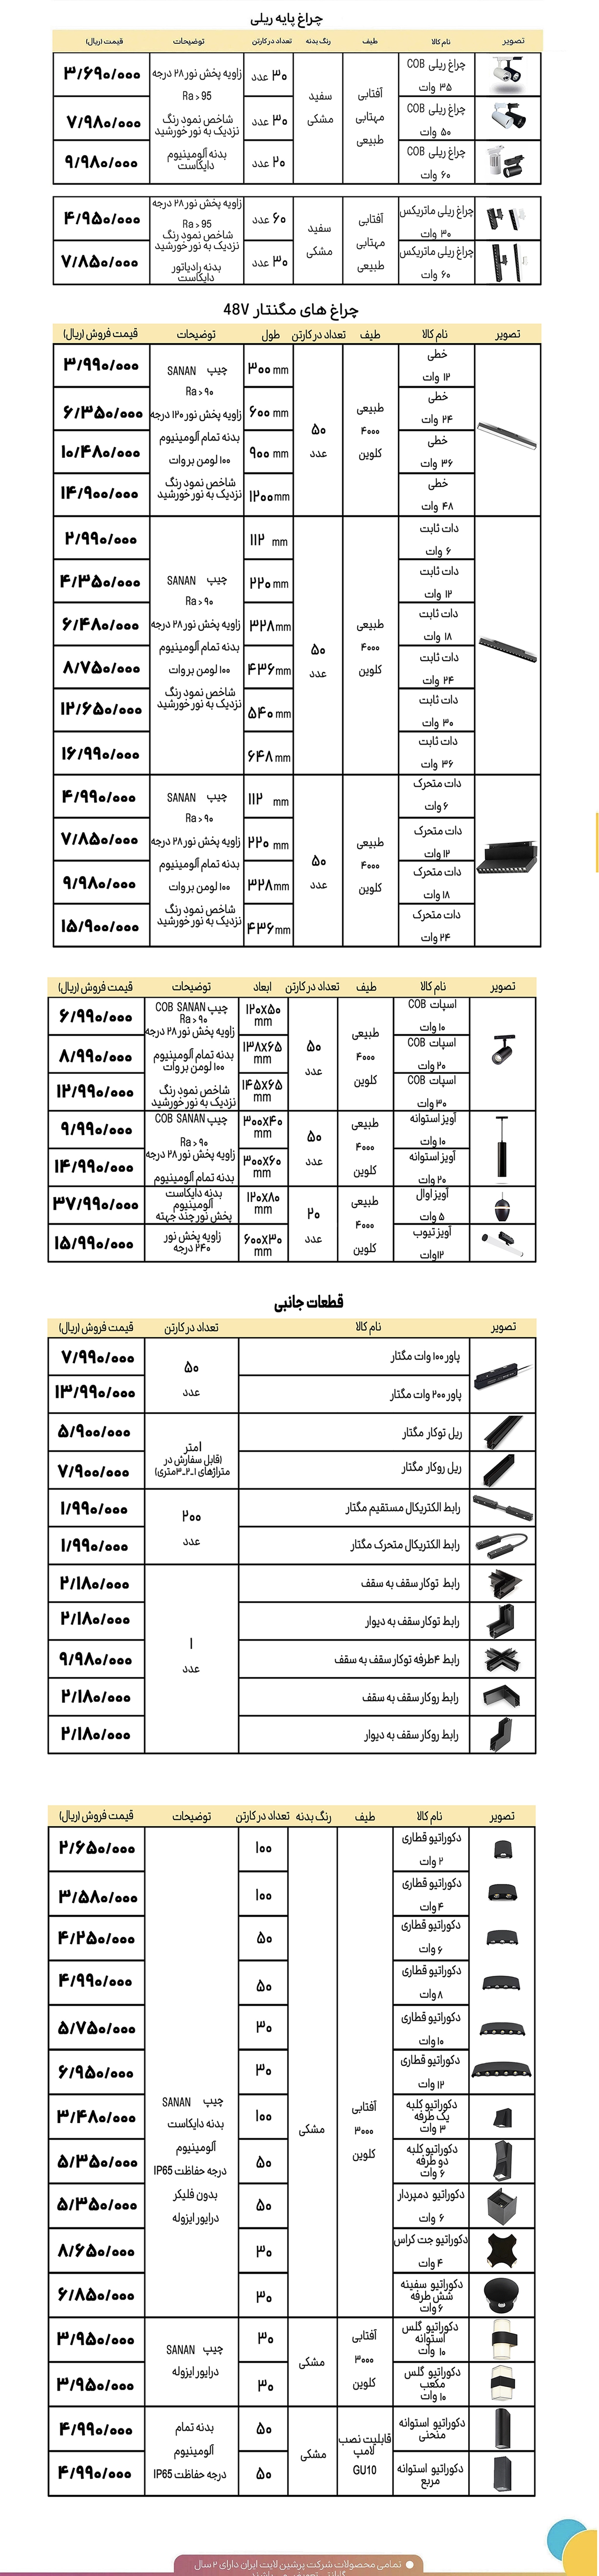 چراغ پایه ریلی
تصویر نام کالا طیف رنگ بدنه تعداد در کارتن توضیحات قیمت (ریال)
چراغ ریلی COB
۳۵ وات
۳۰ عدد
۳/۶۹۰/۰۰۰
چراغ ریلی COB
۵۰ وات
۳۰ عدد
۷/۹۸۰/۰۰۰
چراغ ریلی COB
۶۰ وات
۲۰ عدد
۹/۹۸۰/۰۰۰
آفتابی
مهتابی
طبیعی
سفید
مشکی
زاویه پخش نور ۲۸ درجه
Ra > 95
شاخص نمود رنگ
نزدیک به نور خورشید
بدنه آلومینیوم
دایکاست
چراغ ریلی ماتریکس
۳۰ وات
۶۰ عدد
۴/۹۵۰/۰۰۰
چراغ ریلی ماتریکس
۶۰ وات
۳۰ عدد
۷/۸۵۰/۰۰۰
آفتابی
مهتابی
طبیعی
سفید
مشکی
زاویه پخش نور ۲۸ درجه
Ra > 95
شاخص نمود رنگ
نزدیک به نور خورشید
بدنه رادیاتور
دایکاست
چراغ های مگنتار 48V
تصویر نام کالا طیف تعداد در کارتن طول توضیحات قیمت فروش (ریال)
خطی
۱۲ وات
۳۰۰ mm
۳/۹۹۰/۰۰۰
خطی
۲۴ وات
۶۰۰ mm
۶/۳۵۰/۰۰۰
خطی
۳۶ وات
۹۰۰ mm
۱۰/۴۸۰/۰۰۰
خطی
۴۸ وات
۱۲۰۰ mm
۱۴/۹۰۰/۰۰۰
طبیعی
۴۰۰۰
کلوین
۵۰
عدد
چیپ SANAN
Ra > ۹۰
زاویه پخش نور ۱۲۰ درجه
بدنه تمام آلومینیوم
۱۰۰ لومن بر وات
شاخص نمود رنگ
نزدیک به نور خورشید
دات ثابت
۶ وات
۱۱۲ mm
۲/۹۹۰/۰۰۰
دات ثابت
۱۲ وات
۲۲۰ mm
۴/۳۵۰/۰۰۰
دات ثابت
۱۸ وات
۳۲۸ mm
۶/۴۸۰/۰۰۰
دات ثابت
۲۴ وات
۴۳۶ mm
۸/۷۵۰/۰۰۰
دات ثابت
۳۰ وات
۵۴۰ mm
۱۲/۶۵۰/۰۰۰
دات ثابت
۳۶ وات
۶۴۸ mm
۱۶/۹۹۰/۰۰۰
طبیعی
۴۰۰۰
کلوین
۵۰
عدد
چیپ SANAN
Ra > ۹۰
زاویه پخش نور ۲۸ درجه
بدنه تمام آلومینیوم
۱۰۰ لومن بر وات
شاخص نمود رنگ
نزدیک به نور خورشید
دات متحرک
۶ وات
۱۱۲ mm
۴/۹۹۰/۰۰۰
دات متحرک
۱۲ وات
۲۲۰ mm
۷/۸۵۰/۰۰۰
دات متحرک
۱۸ وات
۳۲۸ mm
۹/۹۸۰/۰۰۰
دات متحرک
۲۴ وات
۴۳۶ mm
۱۵/۹۰۰/۰۰۰
طبیعی
۴۰۰۰
کلوین
۵۰
عدد
چیپ SANAN
Ra > ۹۰
زاویه پخش نور ۲۸ درجه
بدنه تمام آلومینیوم
۱۰۰ لومن بر وات
شاخص نمود رنگ
نزدیک به نور خورشید
تصویر نام کالا طیف تعداد در کارتن ابعاد توضیحات قیمت فروش (ریال)
اسپات COB
۱۰ وات
۱۲۰X۵۰
mm
۶/۹۹۰/۰۰۰
اسپات COB
۲۰ وات
۱۳۸X۶۵
mm
۸/۹۹۰/۰۰۰
اسپات COB
۳۰ وات
۱۴۵X۶۵
mm
۱۲/۹۹۰/۰۰۰
طبیعی
۴۰۰۰
کلوین
۵۰
عدد
چیپ COB SANAN
Ra > ۹۰
زاویه پخش نور ۲۸ درجه
بدنه تمام آلومینیوم
۱۰۰ لومن بر وات
شاخص نمود رنگ
نزدیک به نور خورشید
آویز استوانه
۱۰ وات
۳۰۰X۴۰
mm
۹/۹۹۰/۰۰۰
آویز استوانه
۲۰ وات
۳۰۰X۶۰
mm
۱۴/۹۹۰/۰۰۰
طبیعی
۴۰۰۰
کلوین
۵۰
عدد
چیپ COB SANAN
Ra > ۹۰
زاویه پخش نور ۲۸ درجه
بدنه تمام آلومینیوم
آویز اوال
۵ وات
۱۲۰X۸۰
mm
بدنه دایکاست
آلومینیوم
پخش نور چند جهته
۳۷/۹۹۰/۰۰۰
آویز تیوب
۱۲وات
۶۰۰X۳۰
mm
زاویه پخش نور
۲۴۰ درجه
۱۵/۹۹۰/۰۰۰
طبیعی
۴۰۰۰
کلوین
۲۰
عدد
قطعات جانبی
تصویر نام کالا تعداد در کارتن قیمت فروش (ریال)
پاور ۱۰۰ وات مگنتار
۷/۹۹۰/۰۰۰
پاور ۲۰۰ وات مگنتار
۱۳/۹۹۰/۰۰۰
۵۰
عدد
ریل توکار مگنتار
۵/۹۰۰/۰۰۰
ریل روکار مگنتار
۷/۹۰۰/۰۰۰
۱متر
(قابل سفارش در
متراژهای ۱-۲-۳متری)
رابط الکتریکال مستقیم مگنتار
۱/۹۹۰/۰۰۰
رابط الکتریکال متحرک مگنتار
۱/۹۹۰/۰۰۰
۲۰۰
عدد
رابط توکار سقف به سقف
۲/۱۸۰/۰۰۰
رابط توکار سقف به دیوار
۲/۱۸۰/۰۰۰
رابط ۴طرفه توکار سقف به سقف
۹/۹۸۰/۰۰۰
رابط روکار سقف به سقف
۲/۱۸۰/۰۰۰
رابط روکار سقف به دیوار
۲/۱۸۰/۰۰۰
۱
عدد
تصویر نام کالا طیف رنگ بدنه تعداد در کارتن توضیحات قیمت فروش (ریال)
دکوراتیو قطاری
۲ وات
۱۰۰
۲/۶۵۰/۰۰۰
دکوراتیو قطاری
۴ وات
۱۰۰
۳/۵۸۰/۰۰۰
دکوراتیو قطاری
۶ وات
۵۰
۴/۲۵۰/۰۰۰
دکوراتیو قطاری
۸ وات
۵۰
۴/۹۹۰/۰۰۰
دکوراتیو قطاری
۱۰ وات
۳۰
۵/۷۵۰/۰۰۰
دکوراتیو قطاری
۱۲ وات
۳۰
۶/۹۵۰/۰۰۰
دکوراتیو کلبه
یک طرفه
۳ وات
۱۰۰
۳/۴۸۰/۰۰۰
دکوراتیو کلبه
دو طرفه
۶ وات
۵۰
۵/۳۵۰/۰۰۰
دکوراتیو دمپردار
۶ وات
۵۰
۵/۳۵۰/۰۰۰
دکوراتیو جت کراس
۴ وات
۳۰
۸/۶۵۰/۰۰۰
دکوراتیو سفینه
شش طرفه
۶ وات
۳۰
۶/۸۵۰/۰۰۰
آفتابی
۳۰۰۰
کلوین
مشکی
چیپ SANAN
بدنه دایکاست
آلومینیوم
درجه حفاظت IP65
بدون فلیکر
درایور ایزوله
دکوراتیو گلس
استوانه
۱۰ وات
۳۰
۳/۹۵۰/۰۰۰
دکوراتیو گلس
مکعب
۱۰ وات
۳۰
۳/۹۵۰/۰۰۰
آفتابی
۳۰۰۰
کلوین
مشکی
چیپ SANAN
درایور ایزوله
دکوراتیو استوانه
منحنی
۵۰
۴/۹۹۰/۰۰۰
دکوراتیو استوانه
مربع
۵۰
۴/۹۹۰/۰۰۰
قابلیت نصب
لامپ
GU10
مشکی
بدنه تمام
آلومینیوم
درجه حفاظت IP65
تمامی محصولات شرکت پرشین لایت ایران دارای ۲ سال